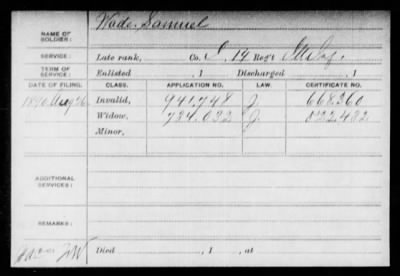 NAME OF SOLDIER: Wade, Samuel
SERVICE: Late rank, Co. I, 14 Reg't Inf.
TERM OF SERVICE: Enlisted , 1 Discharged , 1
DATE OF FILING. CLASS. APPLICATION NO. LAW. CERTIFICATE NO.
1890 Aug 26 Invalid, 941,748 J. 668.360
Widow, 734.032 J. 
Minor,
ADDITIONAL SERVICES:
REMARKS:
Died , 1 , at